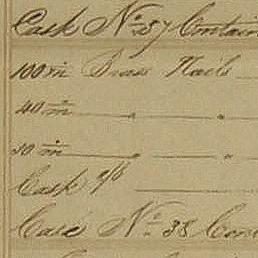 Cask No. 37 Contain
100 m Brass Nails
40 m " "
10 m " "
Cask 9/6
Case No. 38 Cont